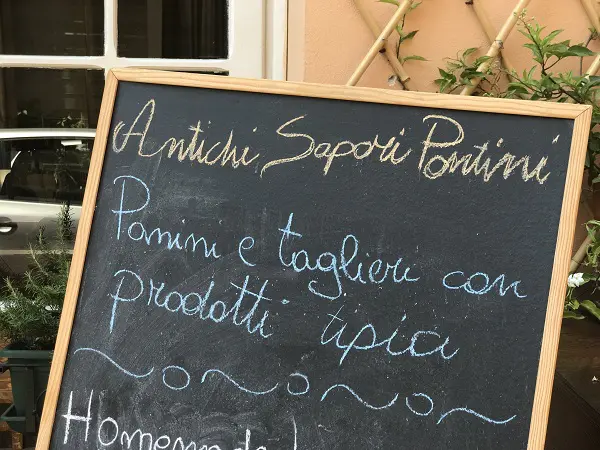 Antichi Sapori Pontini
Panini e taglieri con
prodotti tipici
Homemade